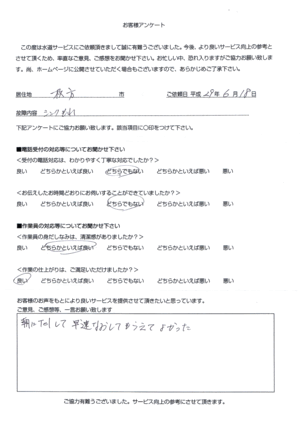 お客様アンケート
この度は水道サービスにご依頼頂きまして誠に有難うございました。今後、より良いサービス向上の参考と
させて頂くため、率直なご意見、ご感想をお聞かせ下さい。お忙しい中、恐れ入りますがご協力お願い致し
ます。尚、ホームページに公開させていただく場合もございますので、あらかじめご了承下さい。
居住地 枚方 市 ご依頼日 平成 29年 6月 18日
故障内容 シンク
下記アンケートにご協力お願い致します。該当項目に〇印をつけて下さい。
■電話受付の対応等についてお聞かせ下さい
<受付の電話対応は、わかりやすく丁寧な対応でしたか?>
良い どちらかといえば良い どちらでもない どちらかといえば悪い 悪い
<お伝えしたお時間どおりにお伺いすることができていましたか?>
良い どちらかといえば良い どちらでもない どちらかといえば悪い 悪い
■作業員の対応等についてお聞かせ下さい
<作業員の身だしなみは、清潔感がありましたか?>
良い どちらかといえば良い どちらでもない どちらかといえば悪い 悪い
<作業の仕上がりは、ご満足いただけましたか?>
良い どちらかといえば良い どちらでもない どちらかといえば悪い 悪い
お客様のお声をもとにより良いサービスを提供させて頂きたいと思っています。
ご意見、ご感想等、一言お願い致します
朝にTelして 早速なおしてもらえて よかった
ご協力有難うございました。サービス向上の参考にさせて頂きます。